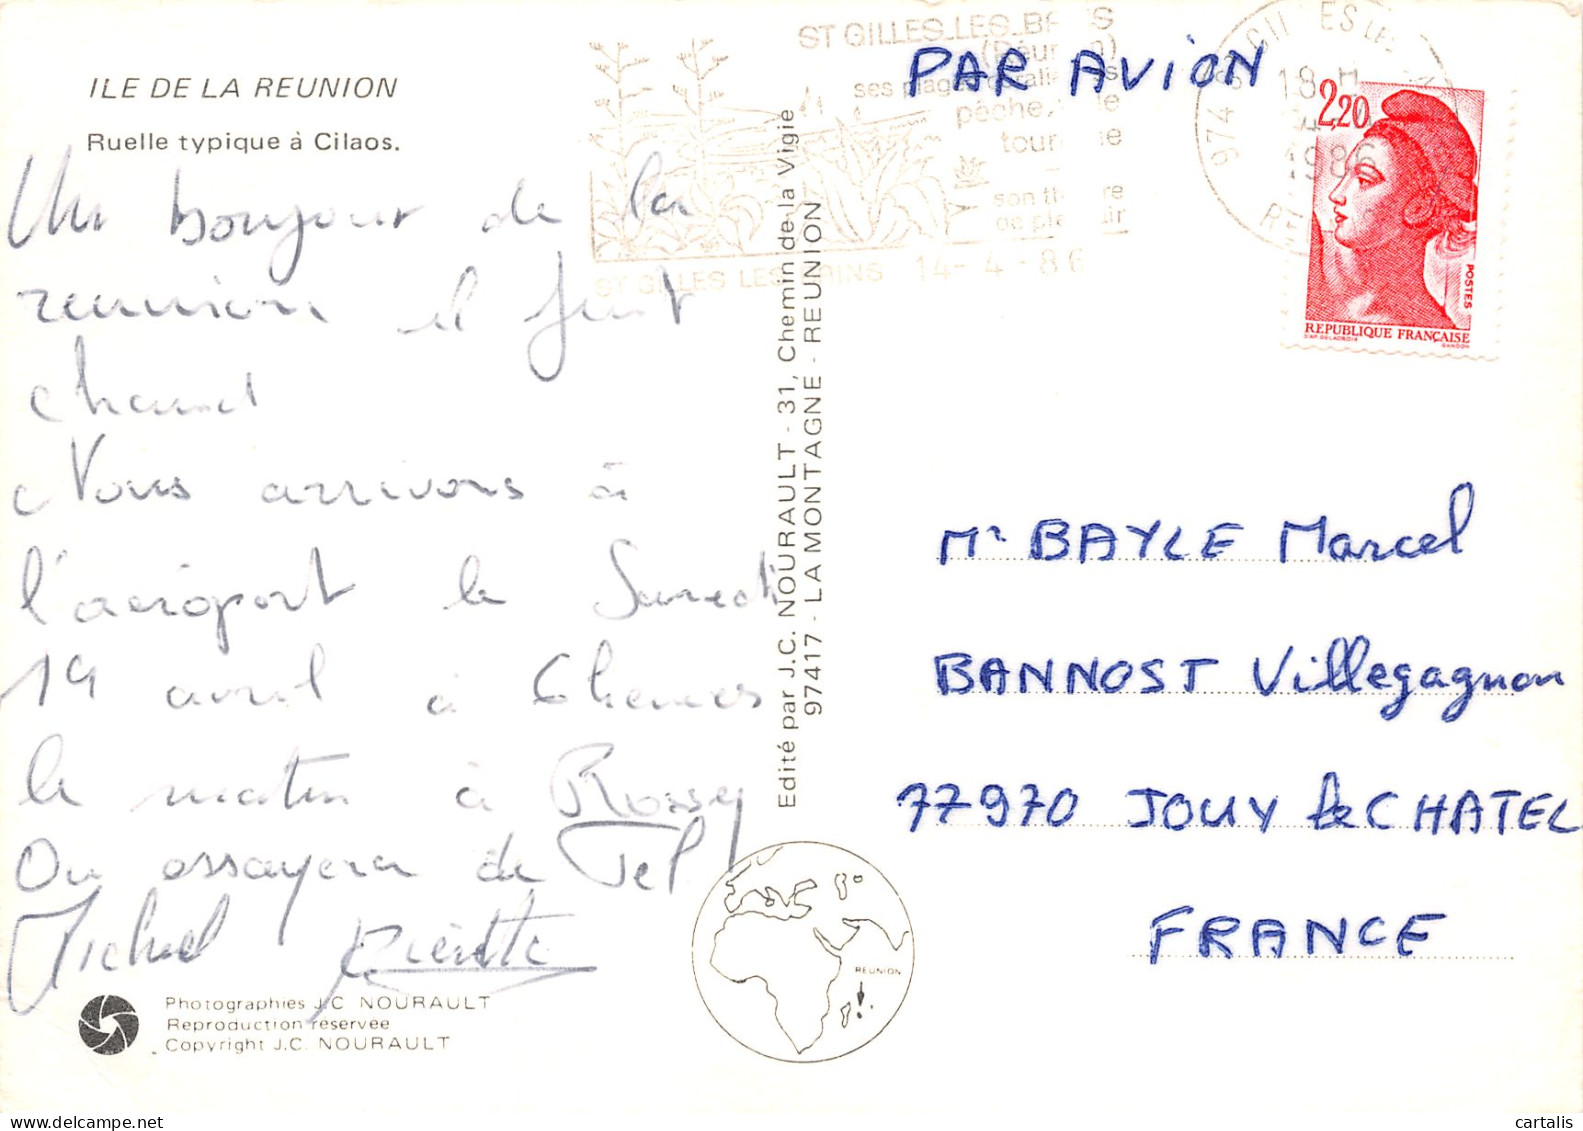 ILE DE LA REUNION
Ruelle typique à Cilaos.
Un bonjour de la
reunion il fait
chaud
Nous arrivons à
l'aéroport le Samedi
19 avril à 6heures
le matin à Roissy
On essayera de Tel
Michel
Photographies J.C. NOURAULT
Reproduction réservée
Copyright J.C. NOURAULT
Edité par J.C. NOURAULT - 31, Chemin de la Vigie
97417 - LA MONTAGNE - REUNION
REUNION
ST GILLES LES BAINS
ses plages
pêche
son
de
ST GILLES LES BAINS 14-4-86
PAR AVION
18 H
1986
2,20
POSTES
REPUBLIQUE FRANÇAISE
D'AP. DELACROIX
GANDON
Mr BAYLE Marcel
BANNOST Villegagnon
77970 JOUY le CHATEL
FRANCE
www.delcampe.net
cartalis